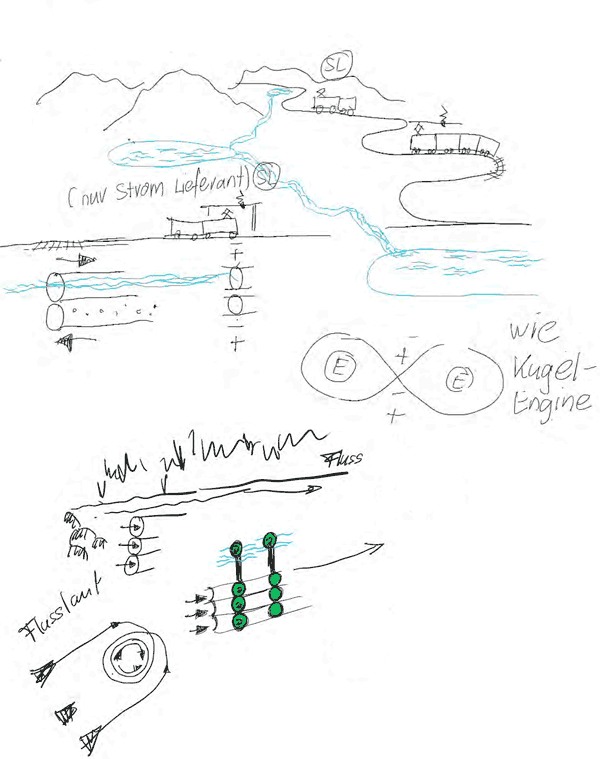 SL
(nur Strom Lieferant) SL
+
-
+
-
+
-
+
E
E
wie
Kugel-
Engine
Fluss
Flusslauf